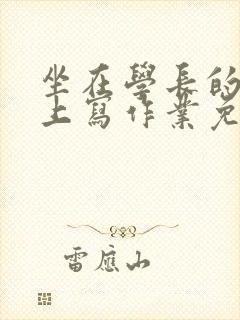 坐在學長的
上寫作業免
雷應山